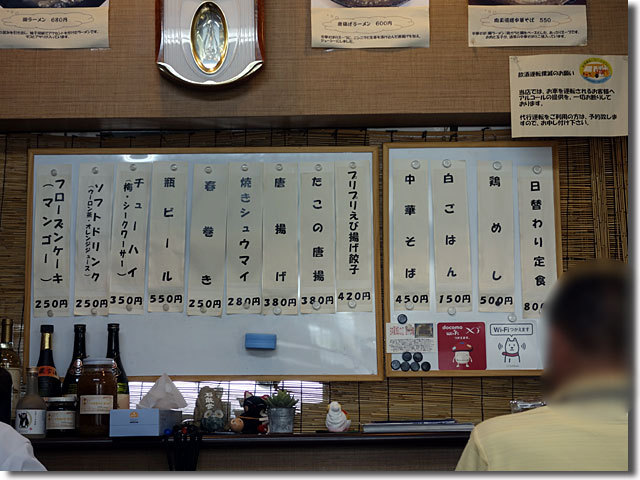 鶏ラーメン 680円
唐揚げラーメン 600円
550
飲酒運転撲滅のお願い
当店では、お車を運転されるお客様へ
アルコールの提供を、一切お断りして
おります。
代行運転をご利用の方は、予約致しま
すので、お申し付け下さい。
日替わり定食 80
鶏めし 500円
白ごはん 150円
中華そば 450円
プリプリえび揚げ餃子 420円
たこの唐揚 380円
唐揚げ 380円
焼きシュウマイ 280円
春巻き 250円
瓶ビール 550円
チューハイ
(梅・シークワーサー) 350円
ソフトドリンク
(ウーロン茶・オレンジジュース) 250円
フローズンケーキ
(マンゴー) 250円
docomo
Wi-Fi
Xi
Wi-Fiつかえます